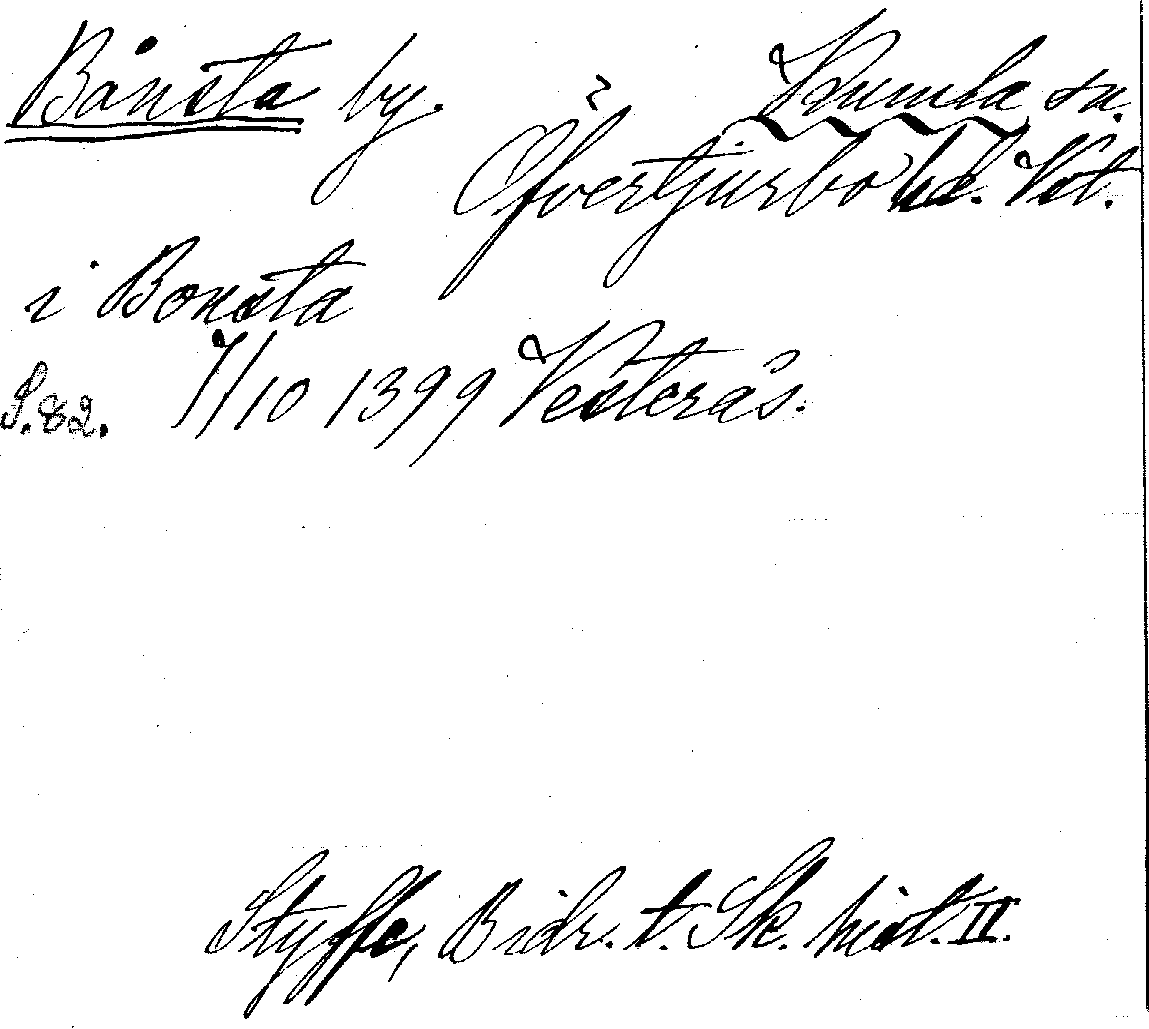 Bånsta by. Kumla sn.
Öfvertjurbo hd. Vstm.
i Bonsta
S. 82. 7/10 1399 Vesterås.
Styffe, Bidr. t. Sk. hist. II.